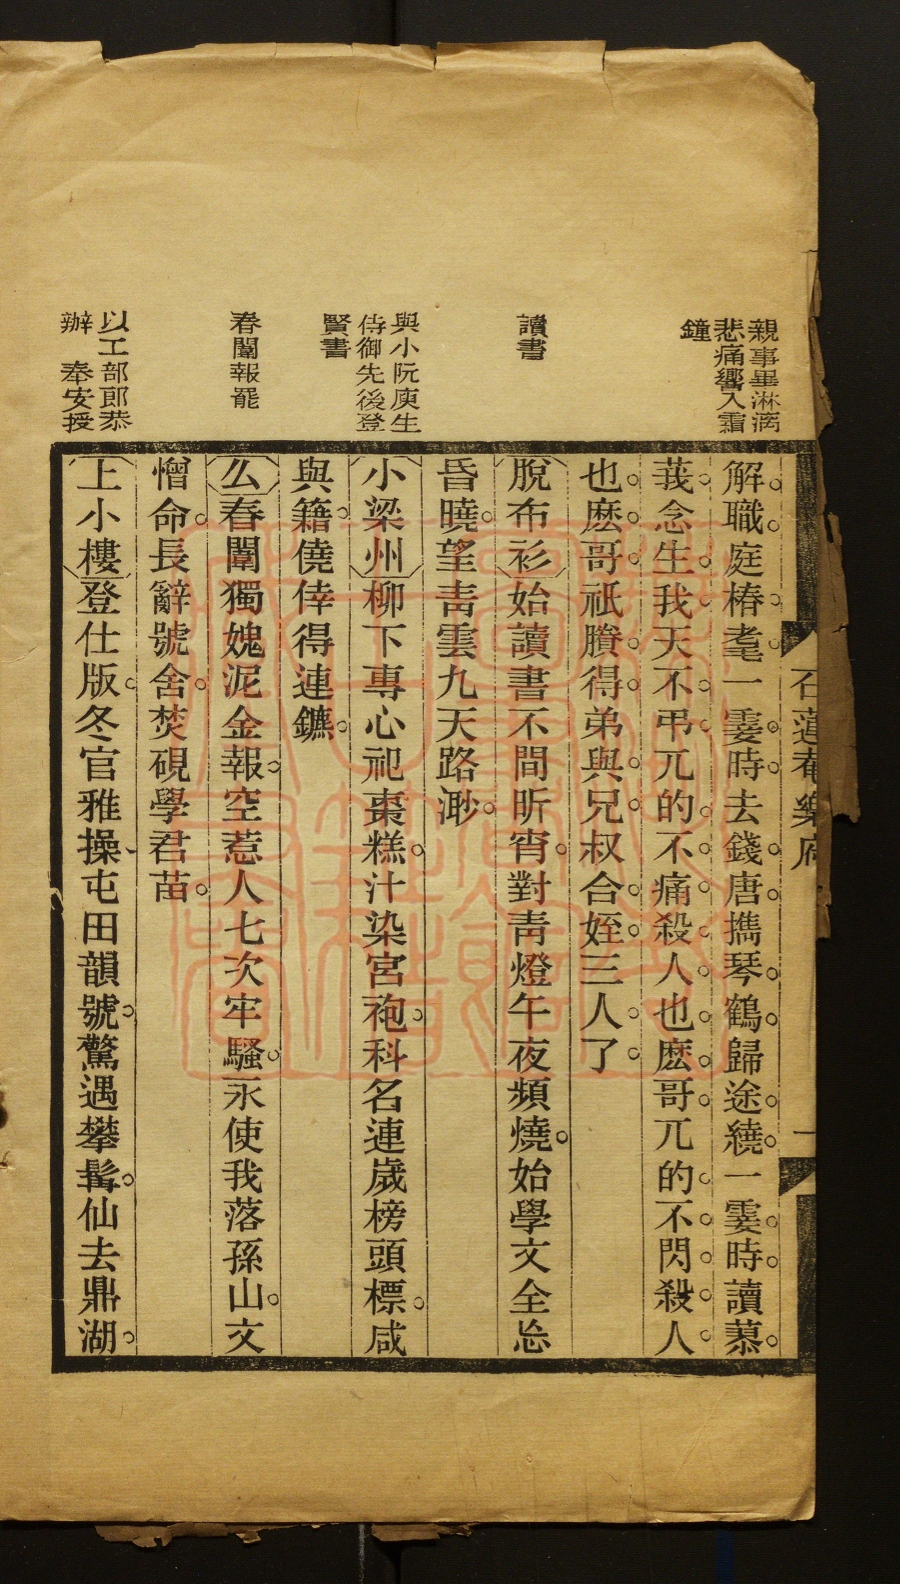 親事畢淋漓
悲痛響入霜
鐘
讀書
與小阮庚生
侍御先後登
賢書
春闈報罷
以工部郎恭
辦 奉安授
解職庭椿耄一霎時去錢唐攜琴鶴歸途繞一霎時讀蓼
莪念生我天不弔兀的不痛殺人也麼哥兀的不閃殺人
也麼哥祇賸得弟與兄叔合姪三人了
脫布衫始讀書不間昕宵對靑燈午夜頻燒始學文全忘
昏曉望靑雲九天路渺
小梁州柳下專心祀棗糕汁染宮袍科名連歲榜頭標咸
與籍僥倖得連鑣
么春闈獨媿泥金報空惹人七次牢騷永使我落孫山文
憎命長辭號舍焚硯學君苗
上小樓登仕版冬官雅操屯田韻號驚遇攀髯仙去鼎湖
石蓮菴樂府
一